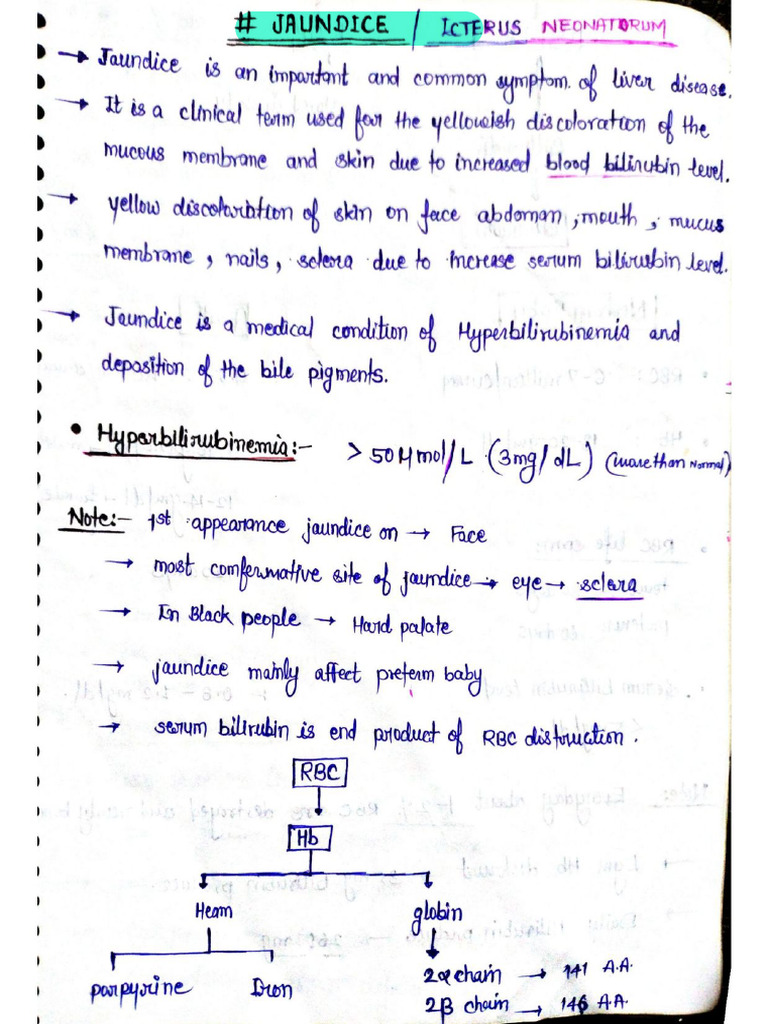 # JAUNDICE / ICTERUS NEONATORUM
→ Jaundice is an important and common symptom of liver disease.
→ It is a clinical term used for the yellowish discoloration of the
mucous membrane and skin due to increased blood bilirubin level.
→ yellow discoloration of skin on face abdoman, mouth, mucus
membrane, nails, sclera due to increase serum bilirusbin level.
→ Jaundice is a medical condition of Hyperbilirubinemia and
deposition of the bile pigments.
• Hyperbilirubinemia:- > 50 µmol/L (3mg/dL) (more than Normal)
Note:- 1st appearance jaundice on → Face
→ most confermative site of jaundice → eye → sclera
→ In Black people → Hard palate
→ jaundice mainly affect preterm baby
→ serum bilirubin is end product of RBC distruction.
RBC
Hb
Heam globin
porpyrine Iron 2α chain → 141 A.A.
2β chain → 146 A.A.